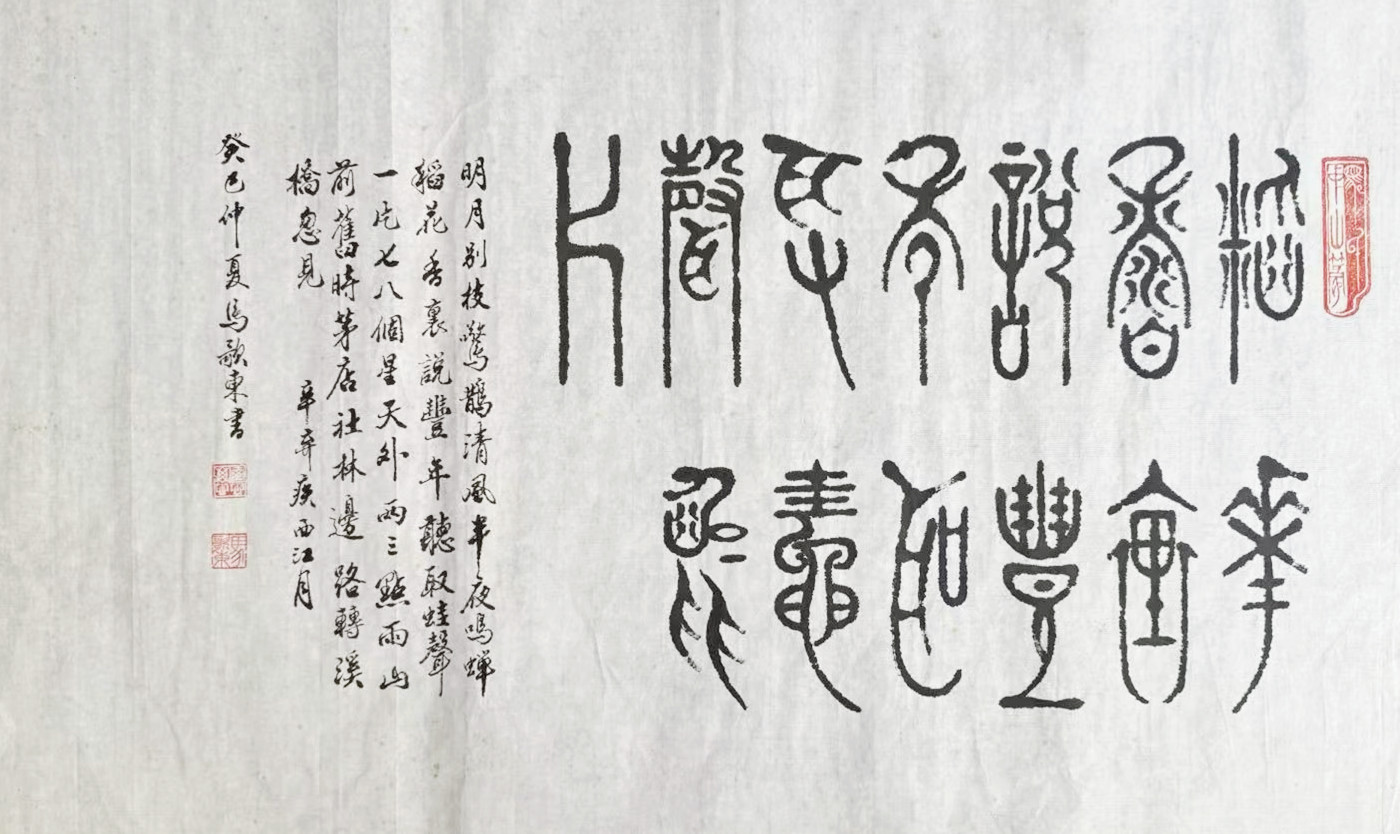 稻花
香裏
說豐
年聽
取蛙
聲一
片
明月别枝驚鵲清風半夜鳴蟬
稻花香裏說豐年聽取蛙聲
一片七八個星天外兩三點雨山
前舊時茅店社林邊路轉溪
橋忽見 辛弃疾西江月
癸巳仲夏馬歌東書